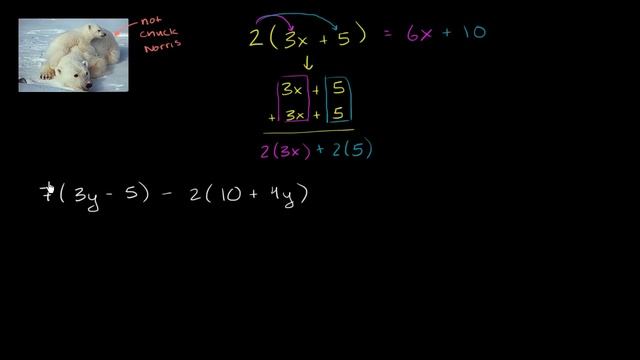 not
chuck
Norris
2(3x + 5) = 6x + 10
3x + 5
+ 3x + 5
2(3x) + 2(5)
7(3y - 5) - 2(10 + 4y)